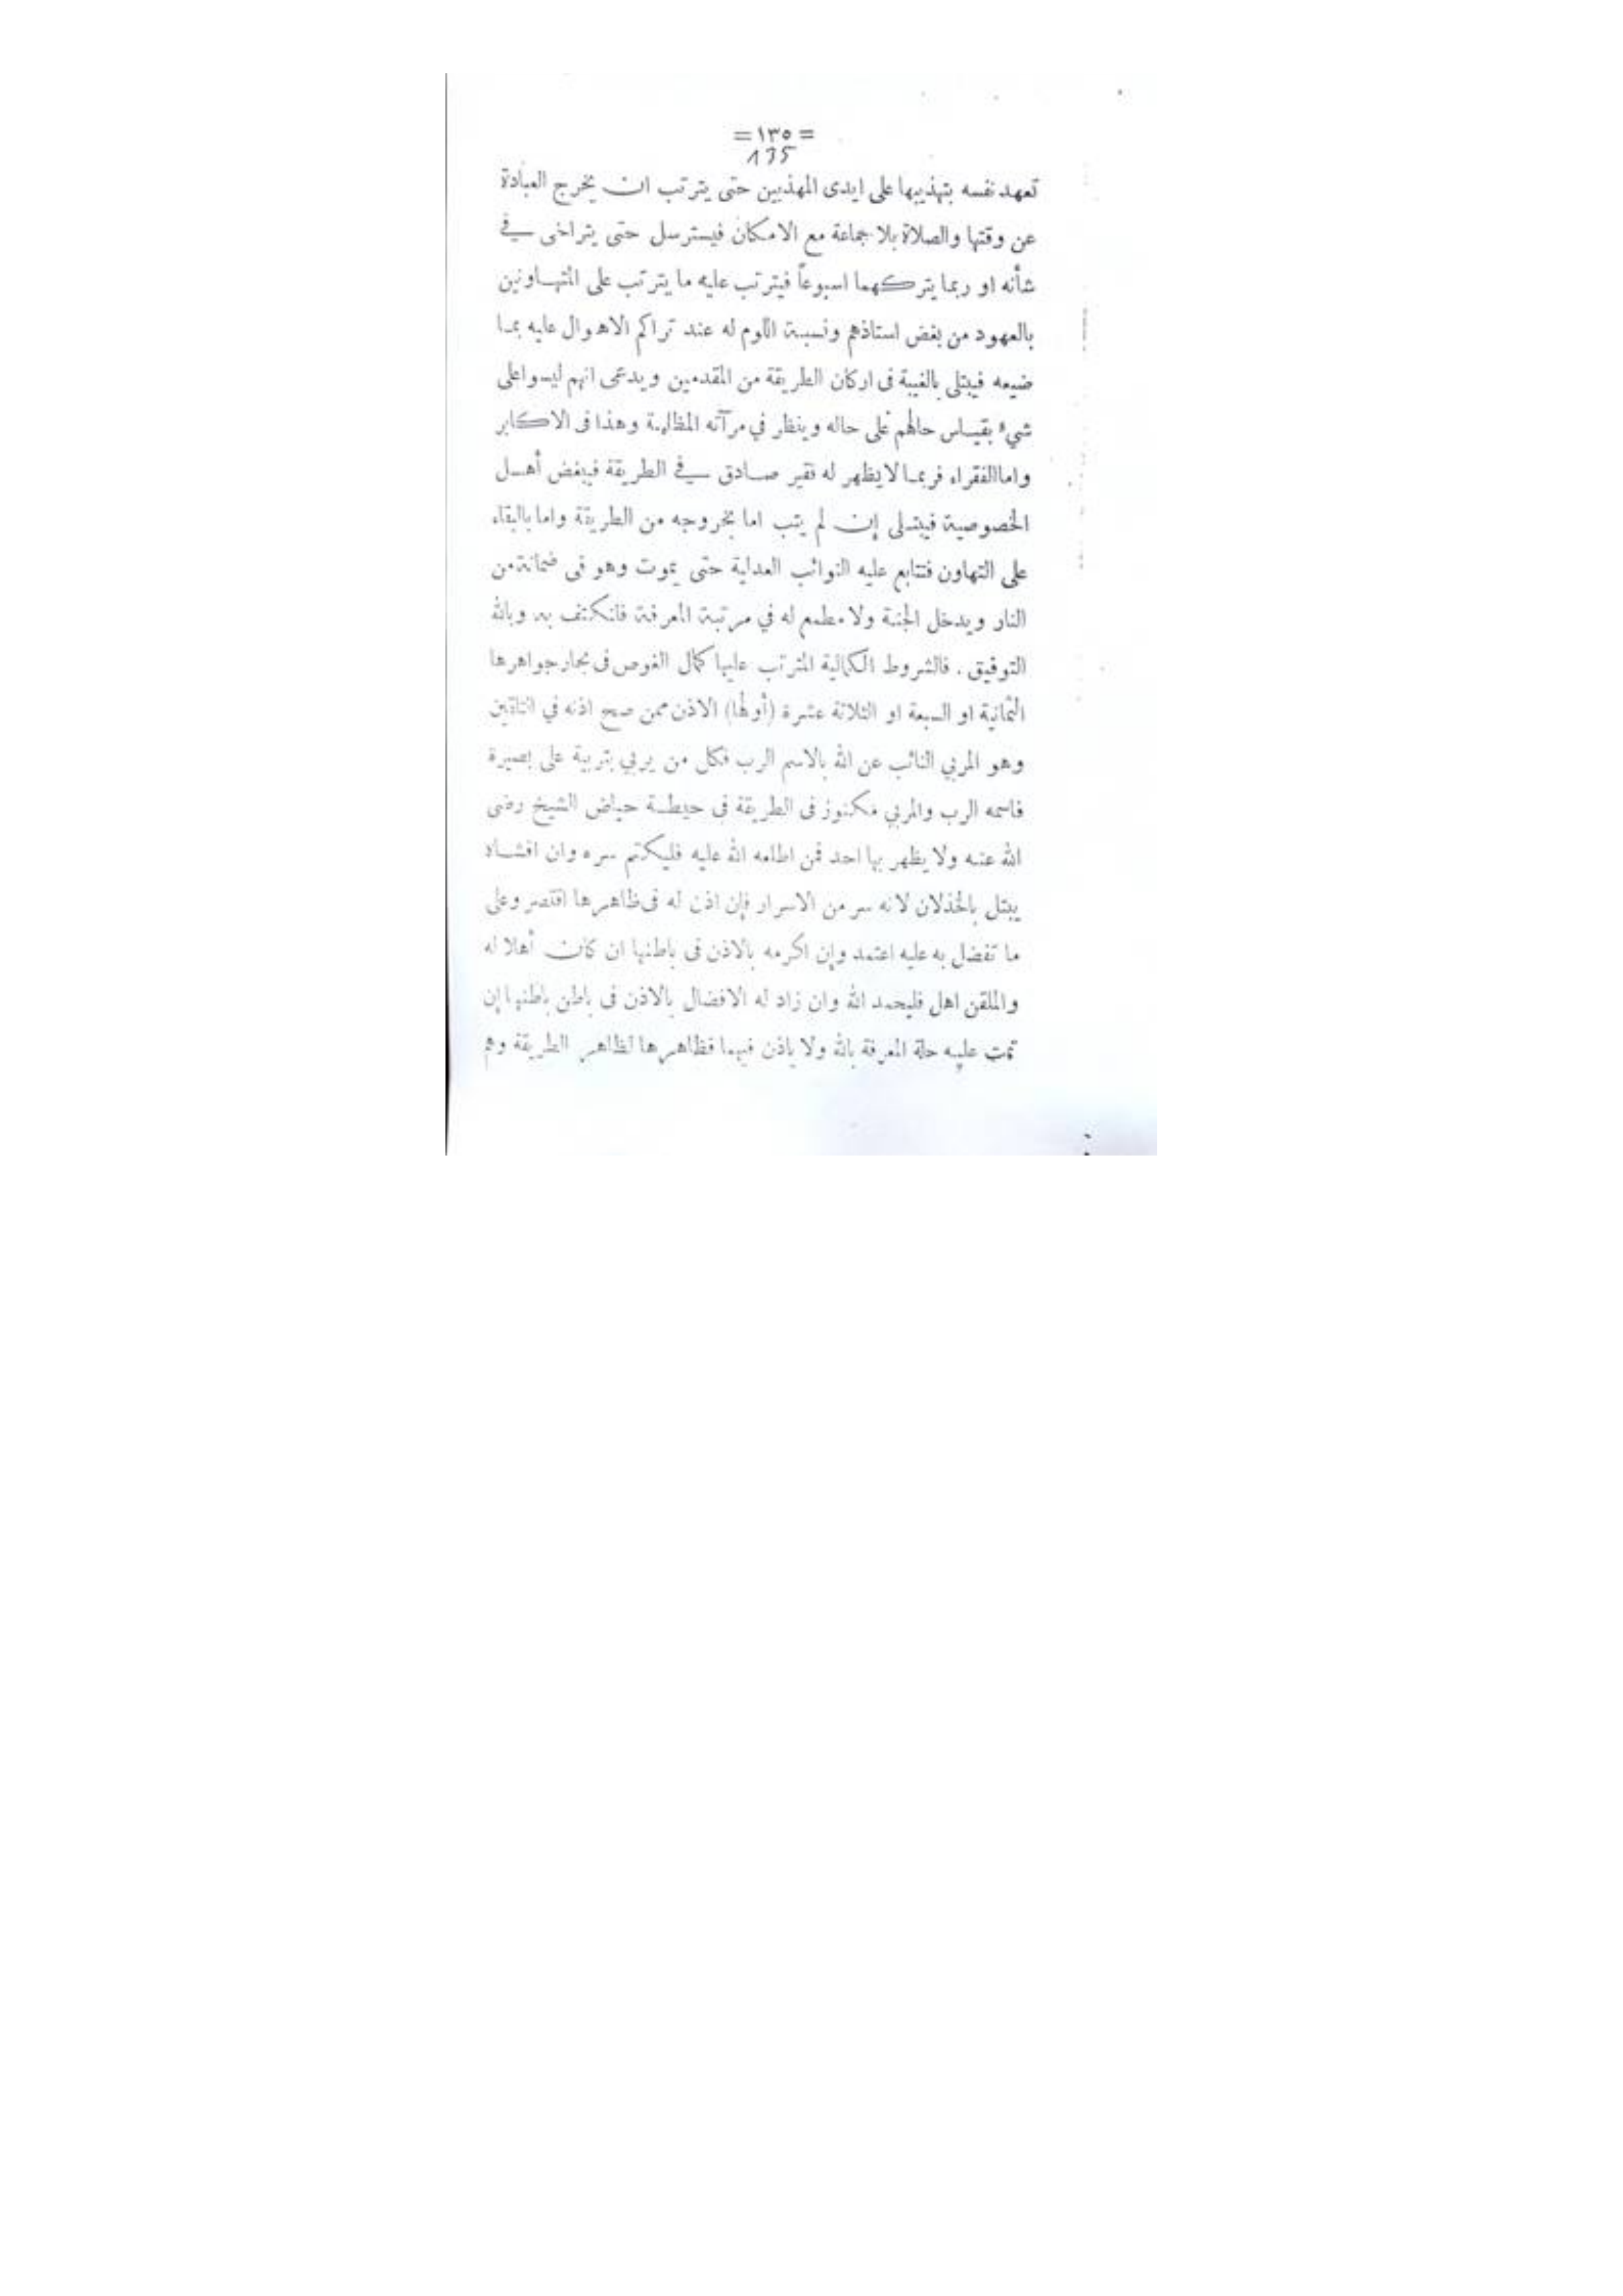 = ١٣٥ =
135
تعهد نفسه بتهذيبها على ايدى المهذبين حتى يترتب ان يخرج العبادة
عن وقتها والصلاة بلا جماعة مع الامكان فيسترسل حتى يتراخى في
شأنه او ربما يتركهما اسبوعاً فيترتب عليه ما يترتب على المتهاونين
بالعهود من بغض استاذهم ونسبة اللوم له عند تراكم الاهوال عليه بما
ضيعه فيبتلى بالغيبة فى اركان الطريقة من المقدمين ويدعى انهم ليسوا على
شيء بقياس حالهم على حاله وينظر في مرآته المظلمة وهذا فى الاكابر
واما الفقراء فربما لا يظهر له فقير صادق في الطريقة فيبغض أهل
الخصوصية فيبتلى إن لم يتب اما بخروجه من الطريقة واما بالبقاء
على التهاون فتتابع عليه النوائب العدلية حتى يموت وهو فى ضمانة من
النار ويدخل الجنة ولا مطمع له في مرتبة المعرفة فانكتف به وبالله
التوفيق . فالشروط الكمالية المترتب عليها كمال الغوص فى بحار جواهرها
الثمانية او السبعة او الثلاثة عشرة (أولها) الاذن ممن صح اذنه في التلقين
وهو المربي النائب عن الله بالاسم الرب فكل من يربي بتربية على بصيرة
فاسمه الرب والمربي مكنوز فى الطريقة فى حيطة حياض الشيخ رضى
الله عنه ولا يظهر بها احد فمن اطلعه الله عليه فليكتم سره وان افشاه
يبتل بالخذلان لانه سر من الاسرار فإن اذن له فى ظاهرها اقتصر وعلى
ما تفضل به عليه اعتمد وإن اكرمه بالاذن فى باطنها ان كان أهلا له
والملقن اهل فليحمد الله وان زاد له الافضال بالاذن فى باطن باطنها إن
تمت عليه حلة المعرفة بالله ولا ياذن فيهما فظاهرها لظاهر الطريقة وهم